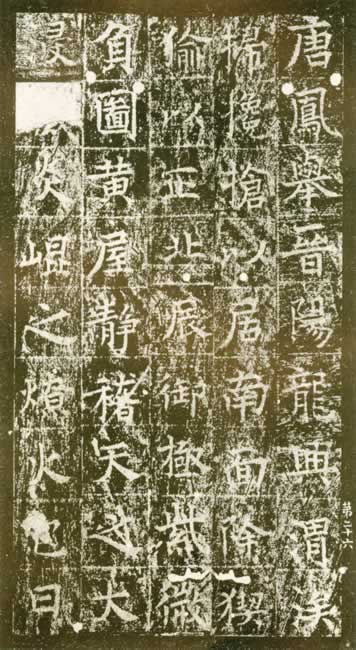 唐鳳舉晉陽龍興渭涘
掃攙搶以居南面除猰
以正北辰御極紫微
負圖黃屋靜稽天之大
浸炎崐之焰火包日
第二十六